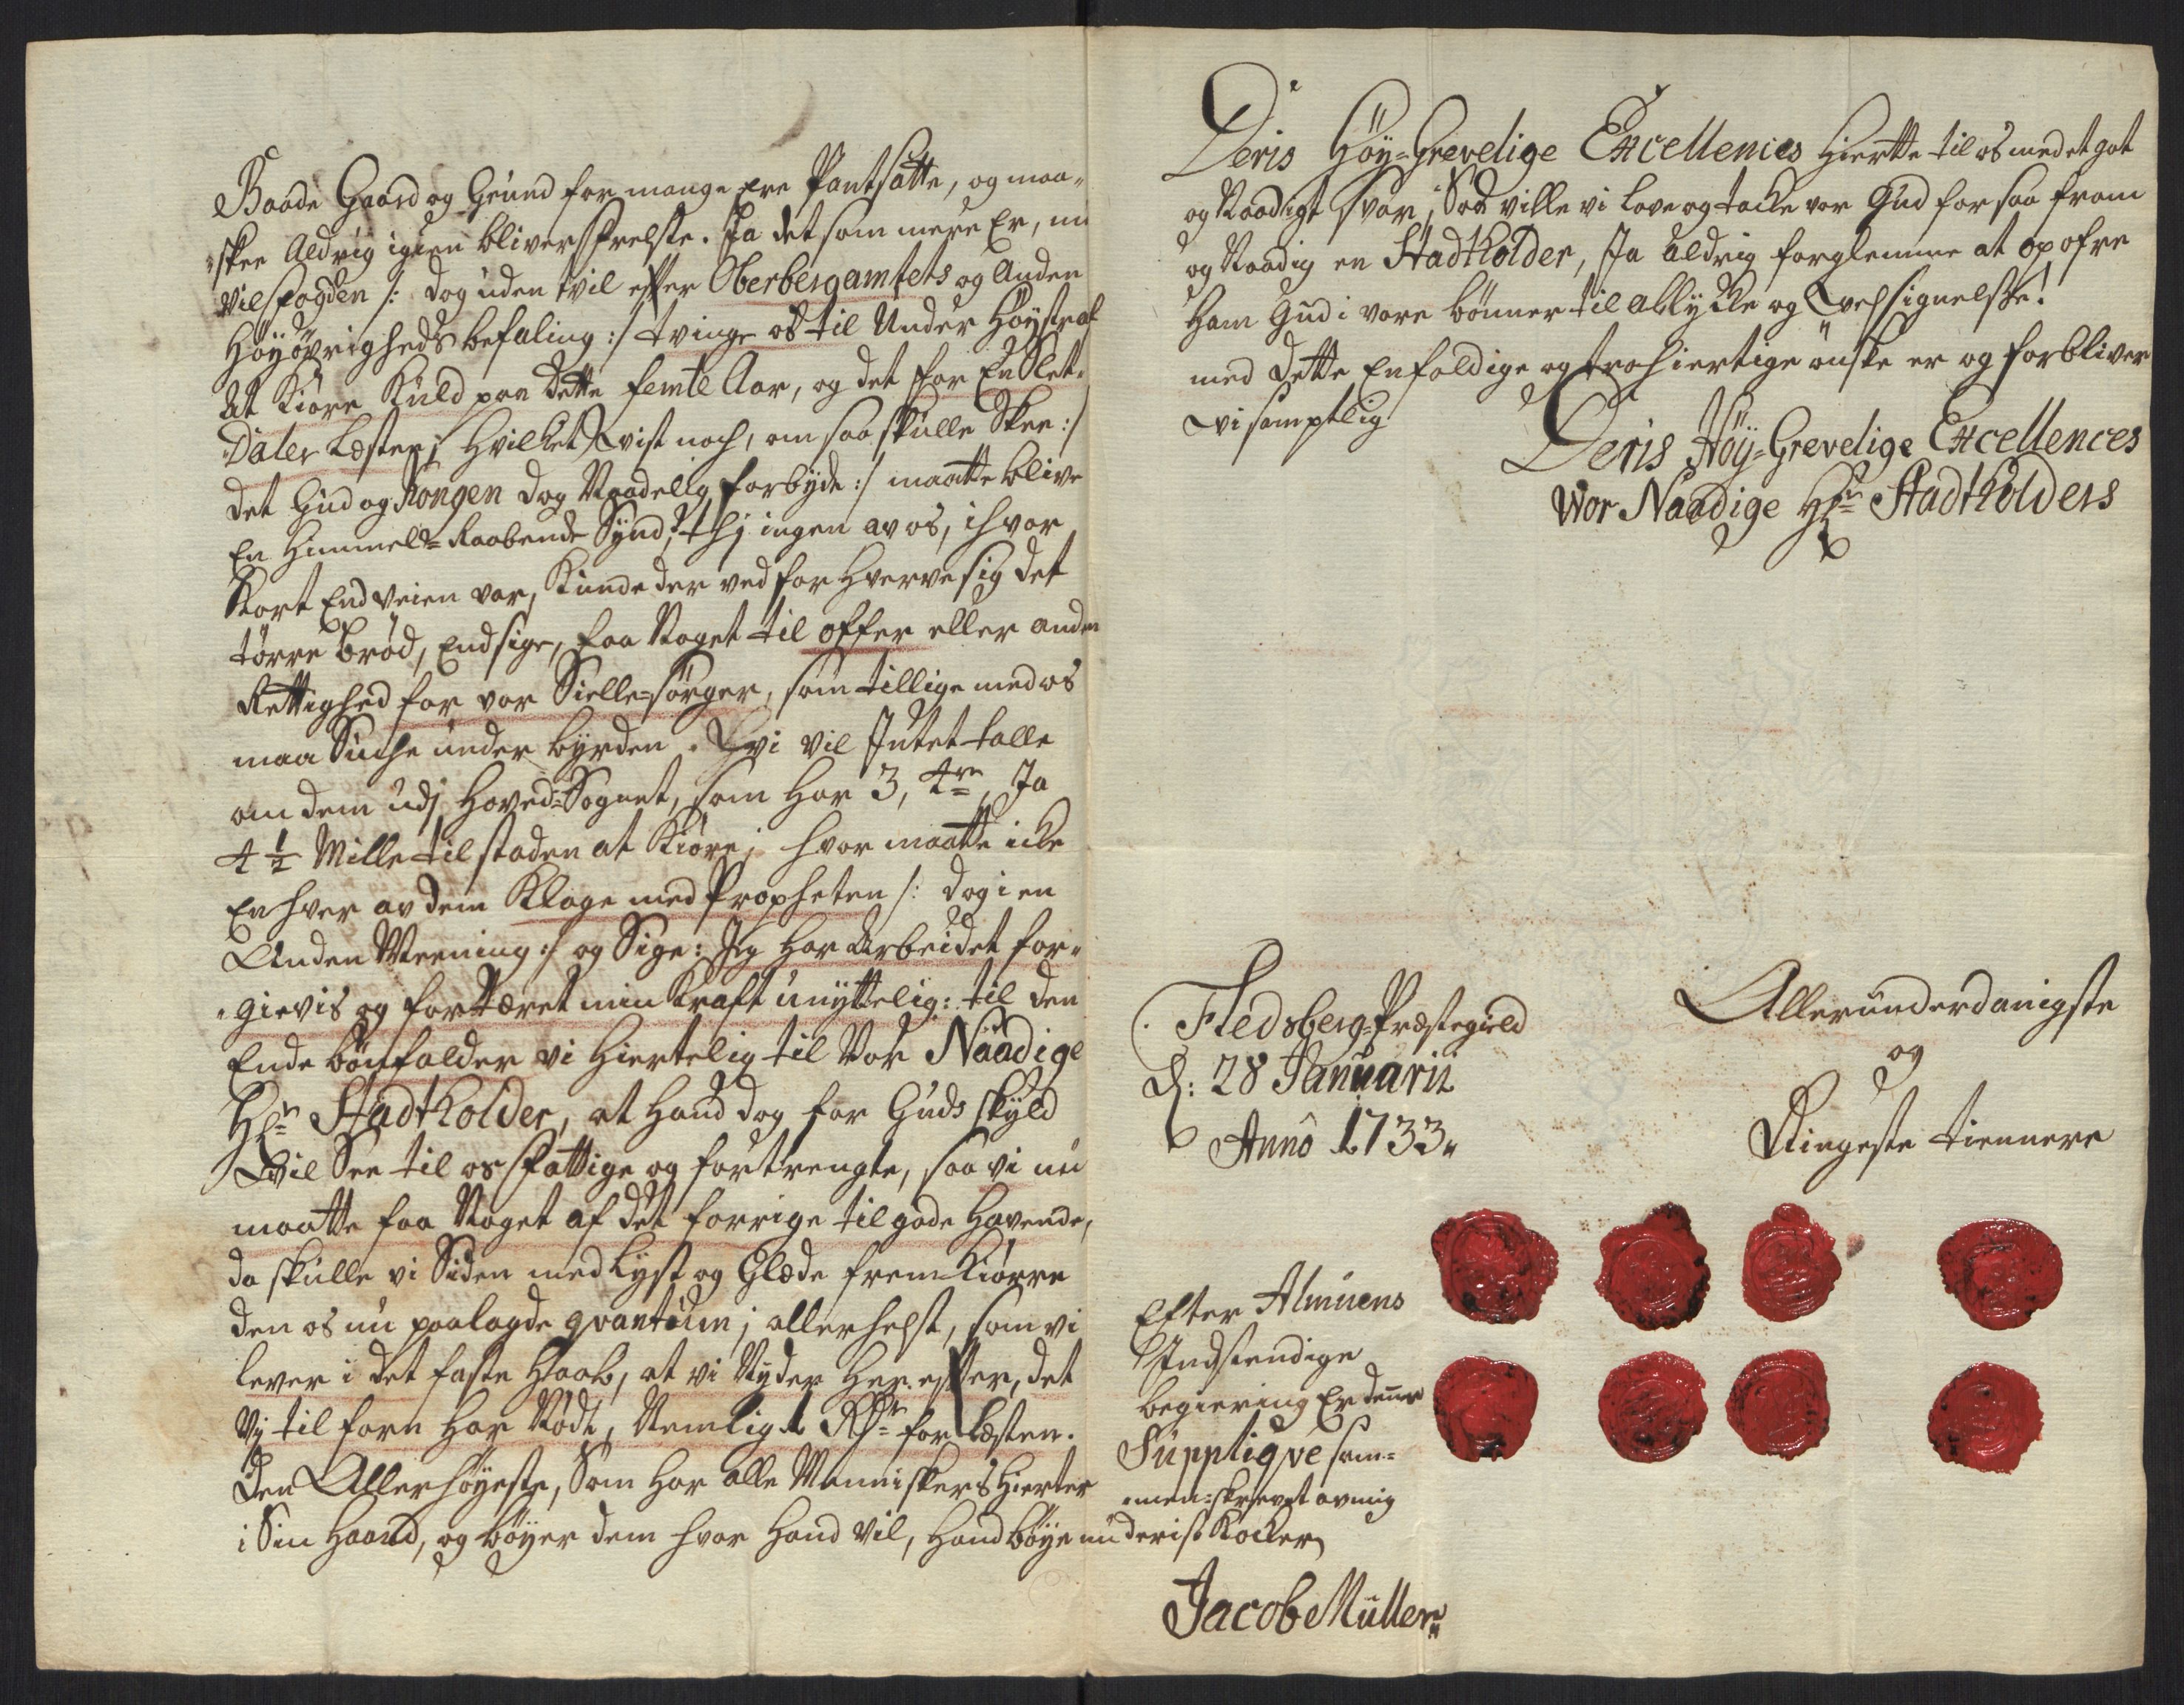 Baade Gaard og Grund for mange ere Pantsatte, og maa-
-skee Aldrig igien bliver frelste. Ja det som mere Er, nu
vil fogden /: dog uden tvil efter Oberbergamtets og Anden
Høyøvrigheds befaling :/ tvinge os til Under Høy straf
At Kiøre Kuld paa dette femte Aar, og det for En Slet-
Daler Læsten; Hvilket vist nock, om saa skulle Skee :/
det Gud og Kongen dog Naadelig forbyde :/ maatte blive
En Himmel-Raabende Synd; thj ingen av os, ihvor
Kort End Veien var, Kunde der ved forhverve sig det
tørre brød, End sige, faa Noget til offer eller anden
Rettighed for vor Sielle-sørger, som tillige med os
maa Sucke under byrden. Vi vil Intet talle
om dem udj Hoved-Sognet, som har 3, 4re, Ja
4 1/2 Mille til staden at Kiøre; hvor maatte icke
En hver av dem Klage med Propheten /: dog i en
Anden Meening :/ og Sige: Jeg har Arbeidet for-
-gievis og fortæret min Kraft unyttelig: til den
Ende bønfalder vi Hiertelig til Vor Naadige
Hr Stadtholder, at Hand dog for Guds skyld
Vil See til os fattige og fortrengte, saa vi nu
maatte faa Noget af det forrige tilgode Havende,
da skulle vi Siden med Lyst og Glæde frem Kiørre
den os nu paalagde qvantum; allerhelst, som vi
lever i det faste Haab, at vi Nyder Her efter, det
Vj tilforn har Nødt, Nemlig 1 Rdr for Læsten.
Den Allerhøyeste, Som har alle Menniskers Hierter
i Sin Haand, og bøyer dem hvor Hand vil, Hand bøye nu
Deris Høy-Grevelige Excellences Hiertte til os med et got
og Naadigt svar, Saa ville vi Love og tacke vor Gud for saa from
og Naadig en Stadtholder, Ja aldrig forglemme at opofre
Ham Gud i vore bønner til all lycke og Velsignelse!
med dette Enfoldige og trohiertige ønske er og forbliver
vi samptlig
Deris Høy-Grevelige Excellences
Wor Naadige Hr Stadtholders
Fledsberg-Præstegield
d: 28 Januarii
Anno 1733.
Allerunderdanigste
og
Ringeste tiennere
Efter Almuens
Indstendige
begiering Er denne
Supplique sam-
-men-skrevet av mig
Jacob Müller